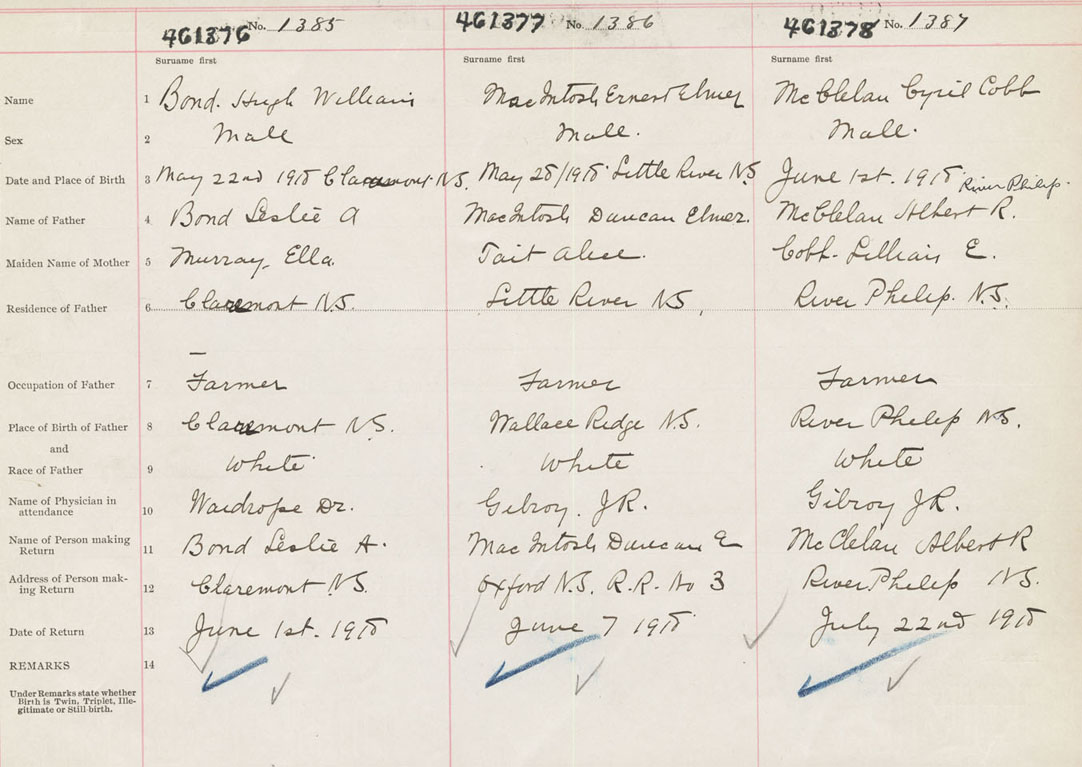 461376 No. 1385 461377 No. 1386 461378 No. 1387
Surname first Surname first Surname first
Name 1 Bond. Hugh William MacIntosh Ernest Elmer McClelan Cyril Cobb
Sex 2 Male Male. Male.
Date and Place of Birth 3 May 22nd 1918 Claremont NS. May 28/1918 Little River NS June 1st. 1918 River Philip.
Name of Father 4 Bond Leslie A MacIntosh Duncan Elmer. McClelan Albert R.
Maiden Name of Mother 5 Murray, Ella. Tait Alice. Cobb. Lillian E.
Residence of Father 6 Claremont N.S. Little River NS, River Philip. N.S.
Occupation of Father 7 Farmer Farmer Farmer
Place of Birth of Father 8 Claremont N.S. Wallace Ridge N.S. River Philip N.S.
and
Race of Father 9 White White White
Name of Physician in
attendance 10 Wardrope Dr. Gilroy. J.R. Gilroy J.R.
Name of Person making
Return 11 Bond Leslie A. MacIntosh Duncan E McClelan Albert R
Address of Person mak-
ing Return 12 Claremont N.S. Oxford N.S. R.R. No 3 River Philip N.S.
Date of Return 13 June 1st. 1918 June 7 1918 July 22nd 1918
REMARKS 14
Under Remarks state whether
Birth is Twin, Triplet, Ille-
gitimate or Still-birth.